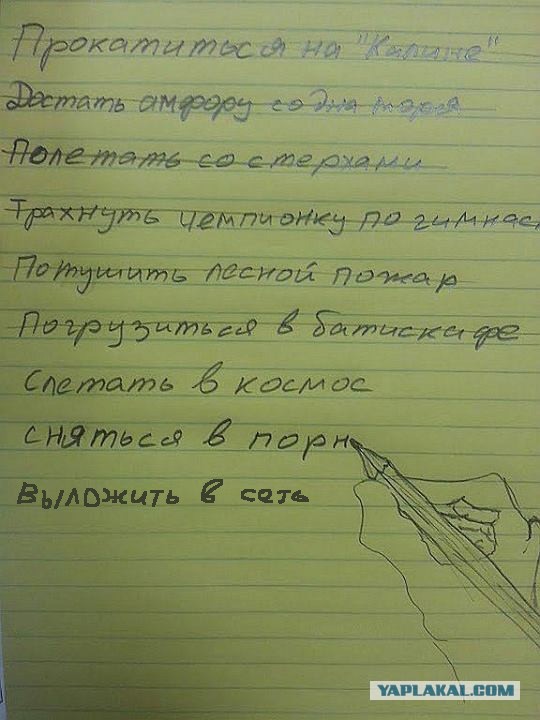 Прокатиться на "Калине"
Достать амфору со дна моря
Полетать со стерхами
Трахнуть чемпионку по гимнаст
Потушить лесной пожар
Погрузиться в батискафе
Слетать в космос
сняться в порн
Выложить в сеть
YAPLAKAL.COM